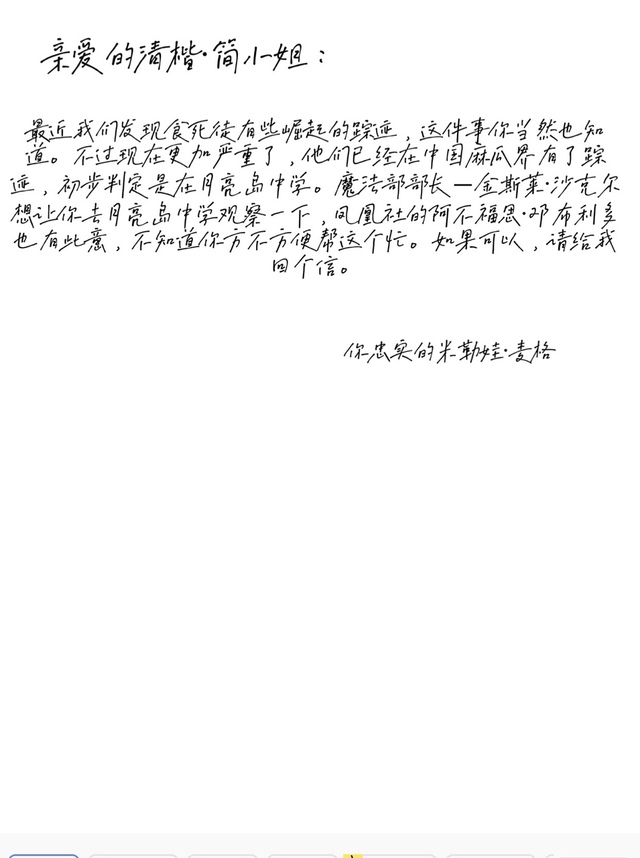 亲爱的清楷·简小姐：
最近我们发现食死徒有些崛起的踪迹，这件事你当然也知
道。不过现在更加严重了，他们已经在中国麻瓜界有了踪
迹，初步判定是在月亮岛中学。魔法部部长—金斯莱·沙克尔
想让你去月亮岛中学观察一下，凤凰社的阿不福思·邓布利多
也有此意，不知道你方不方便帮这个忙。如果可以，请给我
回个信。
你忠实的米勒娃·麦格